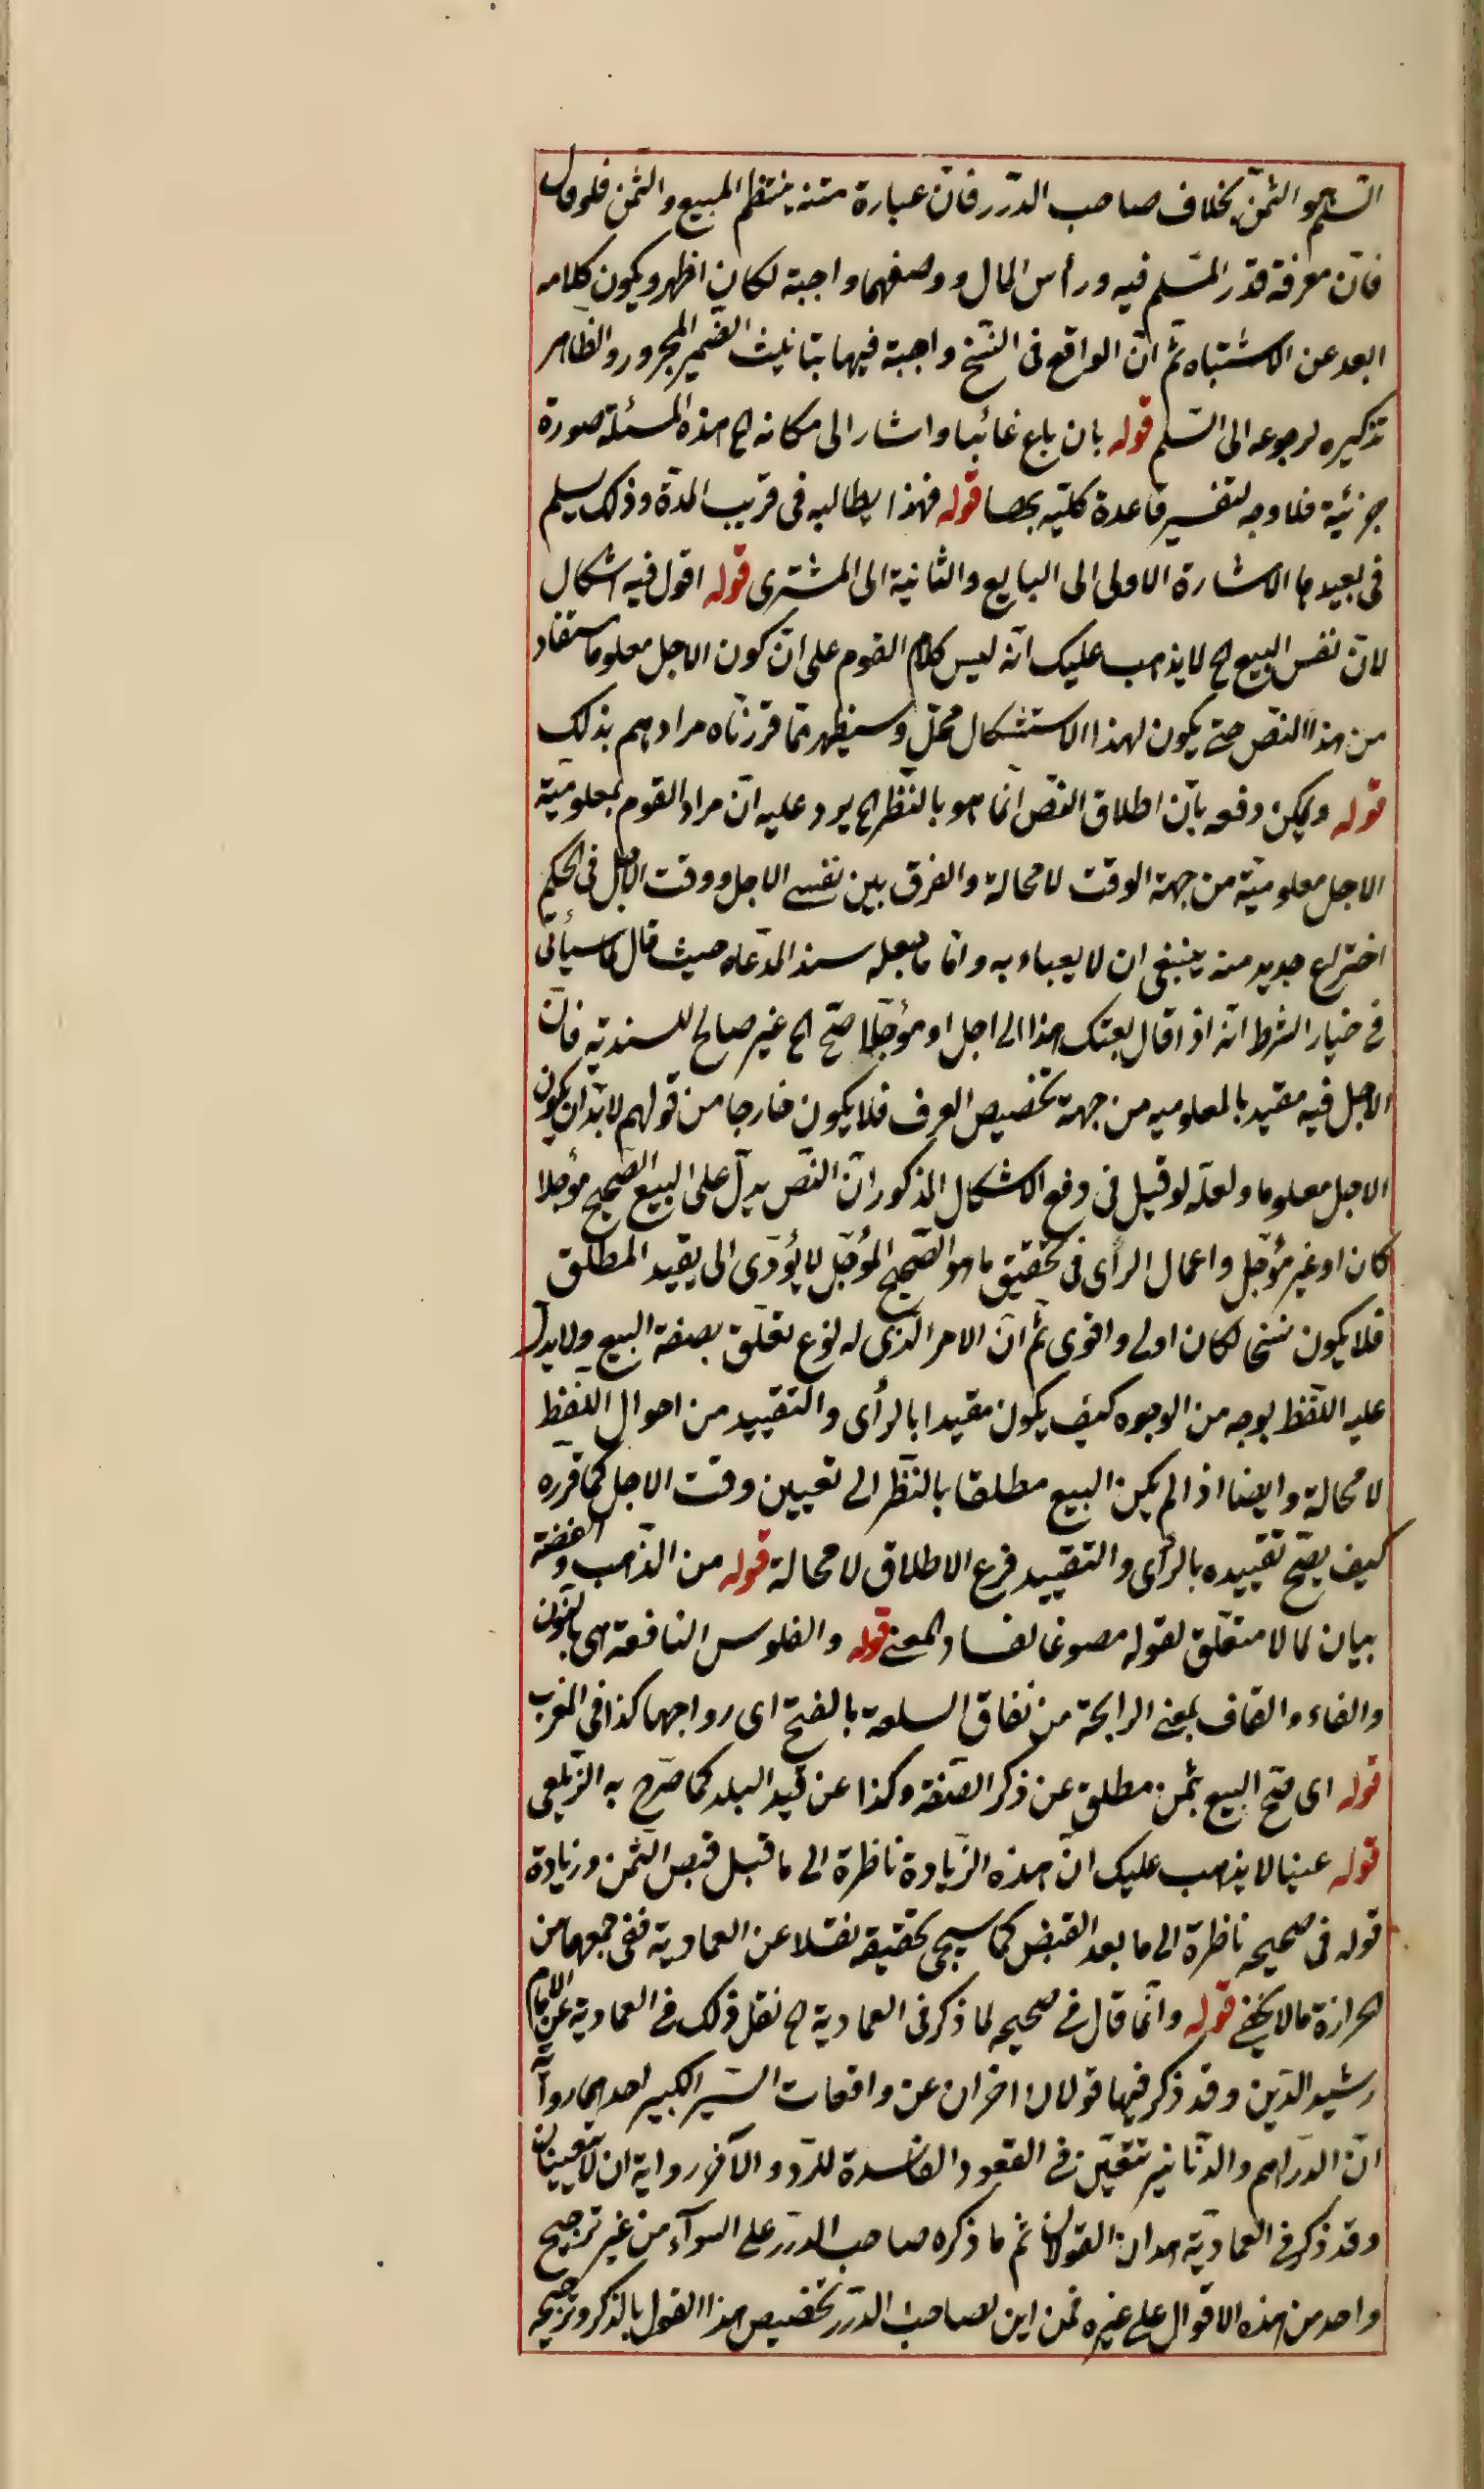 السلم والثمن بخلاف صاحب الدّرر فانّ عبارة متنه ينتظم المبيع والثمن فلو قال
فانّ معرفة قدر المسّلم فيه ورأس المال ووصفهما واجبة لكان اظهر ويكون كلامه
ابعد عن الاشتباه ثمّ انّ الواقع فى النسّخ واجبة فيها بتانيث الضّمير المجرور والظّاهر
تذكيره لرجوعه الى السّلم قوله بان باع غائبا واشار الى مكانه الخ هذه المسئلة صورة
جزئيّة فلا وجه لتفسير قاعدة كليّه بها قوله فهذا يطالبه فى قريب المدّة وذلك يسلم
فى بعيدها الاشارة الاولى الى البايع والثانية الى المشترى قوله اقول فيه اشكال
لانّ نفس البيع الخ لا يذهب عليك انّه ليس كلام القوم على انّ كون الاجل معلوما مستفاد
من هذا النّص حتى يكون لهذا الاستشكال محلّ وسيظهر ممّا قرّرناه مرادهم بذلك
قوله ويمكن دفعه بانّ اطلاق النصّ انّما هو بالنّظر الخ يرد عليه انّ مراد القوم بمعلوميّة
الاجل معلوميّة من جهة الوقت لا محالة والفرق بين نفس الاجل ووقت الاجل فى الحكم
اختراع جديد منه ينبغى ان لا يعباء به وامّا ما جعله سند المدّعاه حيث قال لما سيأتى
فى خيار الشرط انّه اذا قال بعتك هذا الى اجل او مؤجّلا صحّ الخ غير صالح للسنديّه فانّ
الاجل فيه مقيد بالمعلوميه من جهة تخصيص العرف فلا يكون خارجا من قولهم لا بدّ ان يكون
الاجل معلوما ولعلّه لو قيل فى دفع الاشكال المذكور انّ النّص يدلّ على البيع الصّحيح مؤجلا
كان او غير مؤجّل واعمال الرأى فى تحقيق ما هو الصّحيح المؤجّل لا يؤدّى الى يقيد المطلق
فلا يكون نسخا لكان اولى واقوى ثمّ انّ الامر الذّى له نوع تعلّق بصفة البيع ولا يدل
عليه اللّفظ بوجه من الوجوه كيف يكون مقيدا بالرأى والتقييد من احوال اللّفظ
لا محالة وايضا اذا لم يكن البيع مطلقا بالنّظر الى تعيين وقت الاجل كما قرّره
كيف يصّح تقييده بالرأى والتقييد فرع الاطلاق لا محالة قوله من الذّهب والفضّة
بيان لما لا متعلّق لقوله مصوغا لفساد المعنى قوله والفلوس النافقة هى بالنون
والفاء والقاف بمعنى الرابحة من نفاق السلعة بالفتح اى رواجها كذا فى المغرب
قوله اى صّح البيع بثمن مطلق عن ذكر الصّفة وكذا عن قيد البلد كما صّرح به الزّيلعى
قوله عينا لا يذهب عليك انّ هذه الزّيادة ناظرة الى ما قبل قبض الثّمن وزيادة
قوله فى صحيحه ناظرة الى ما بعد القبض كما سيجئ تحقيقه نقلا عن العمادية ففى جمعهما من
الحزازة ما لا يخفى قوله وانّما قال فى صحيحه لما ذكر فى العمادية الخ نقل ذلك فى العمادية عن الامام
رشيد الدّين وقد ذكر فيها قولان اخران عن واقعات السّير الكبير احدهما رواية
انّ الدّراهم والدّنانير تتعيّن فى العقود الفاسدة للرّد والآخر رواية ان لا يتعيّنان
وقد ذكر فى العماديّة هذان القولان ثم ما ذكره صاحب الدّرر على السوآء من غير ترجيح
واحد من هذه الاقوال على غيره فمن اين لصاحب الدّرر تخصيص هذا القول بالذكر وترجيحه